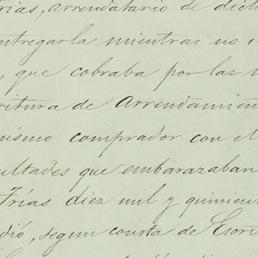 rias, arrendatario de dich
ntregarla mientras no
, que cobraba por las
ritura de Arrendamien
mismo comprador con el
ultades que embarazaban
Frías diez mil y quinient
dió, segun consta de Escri